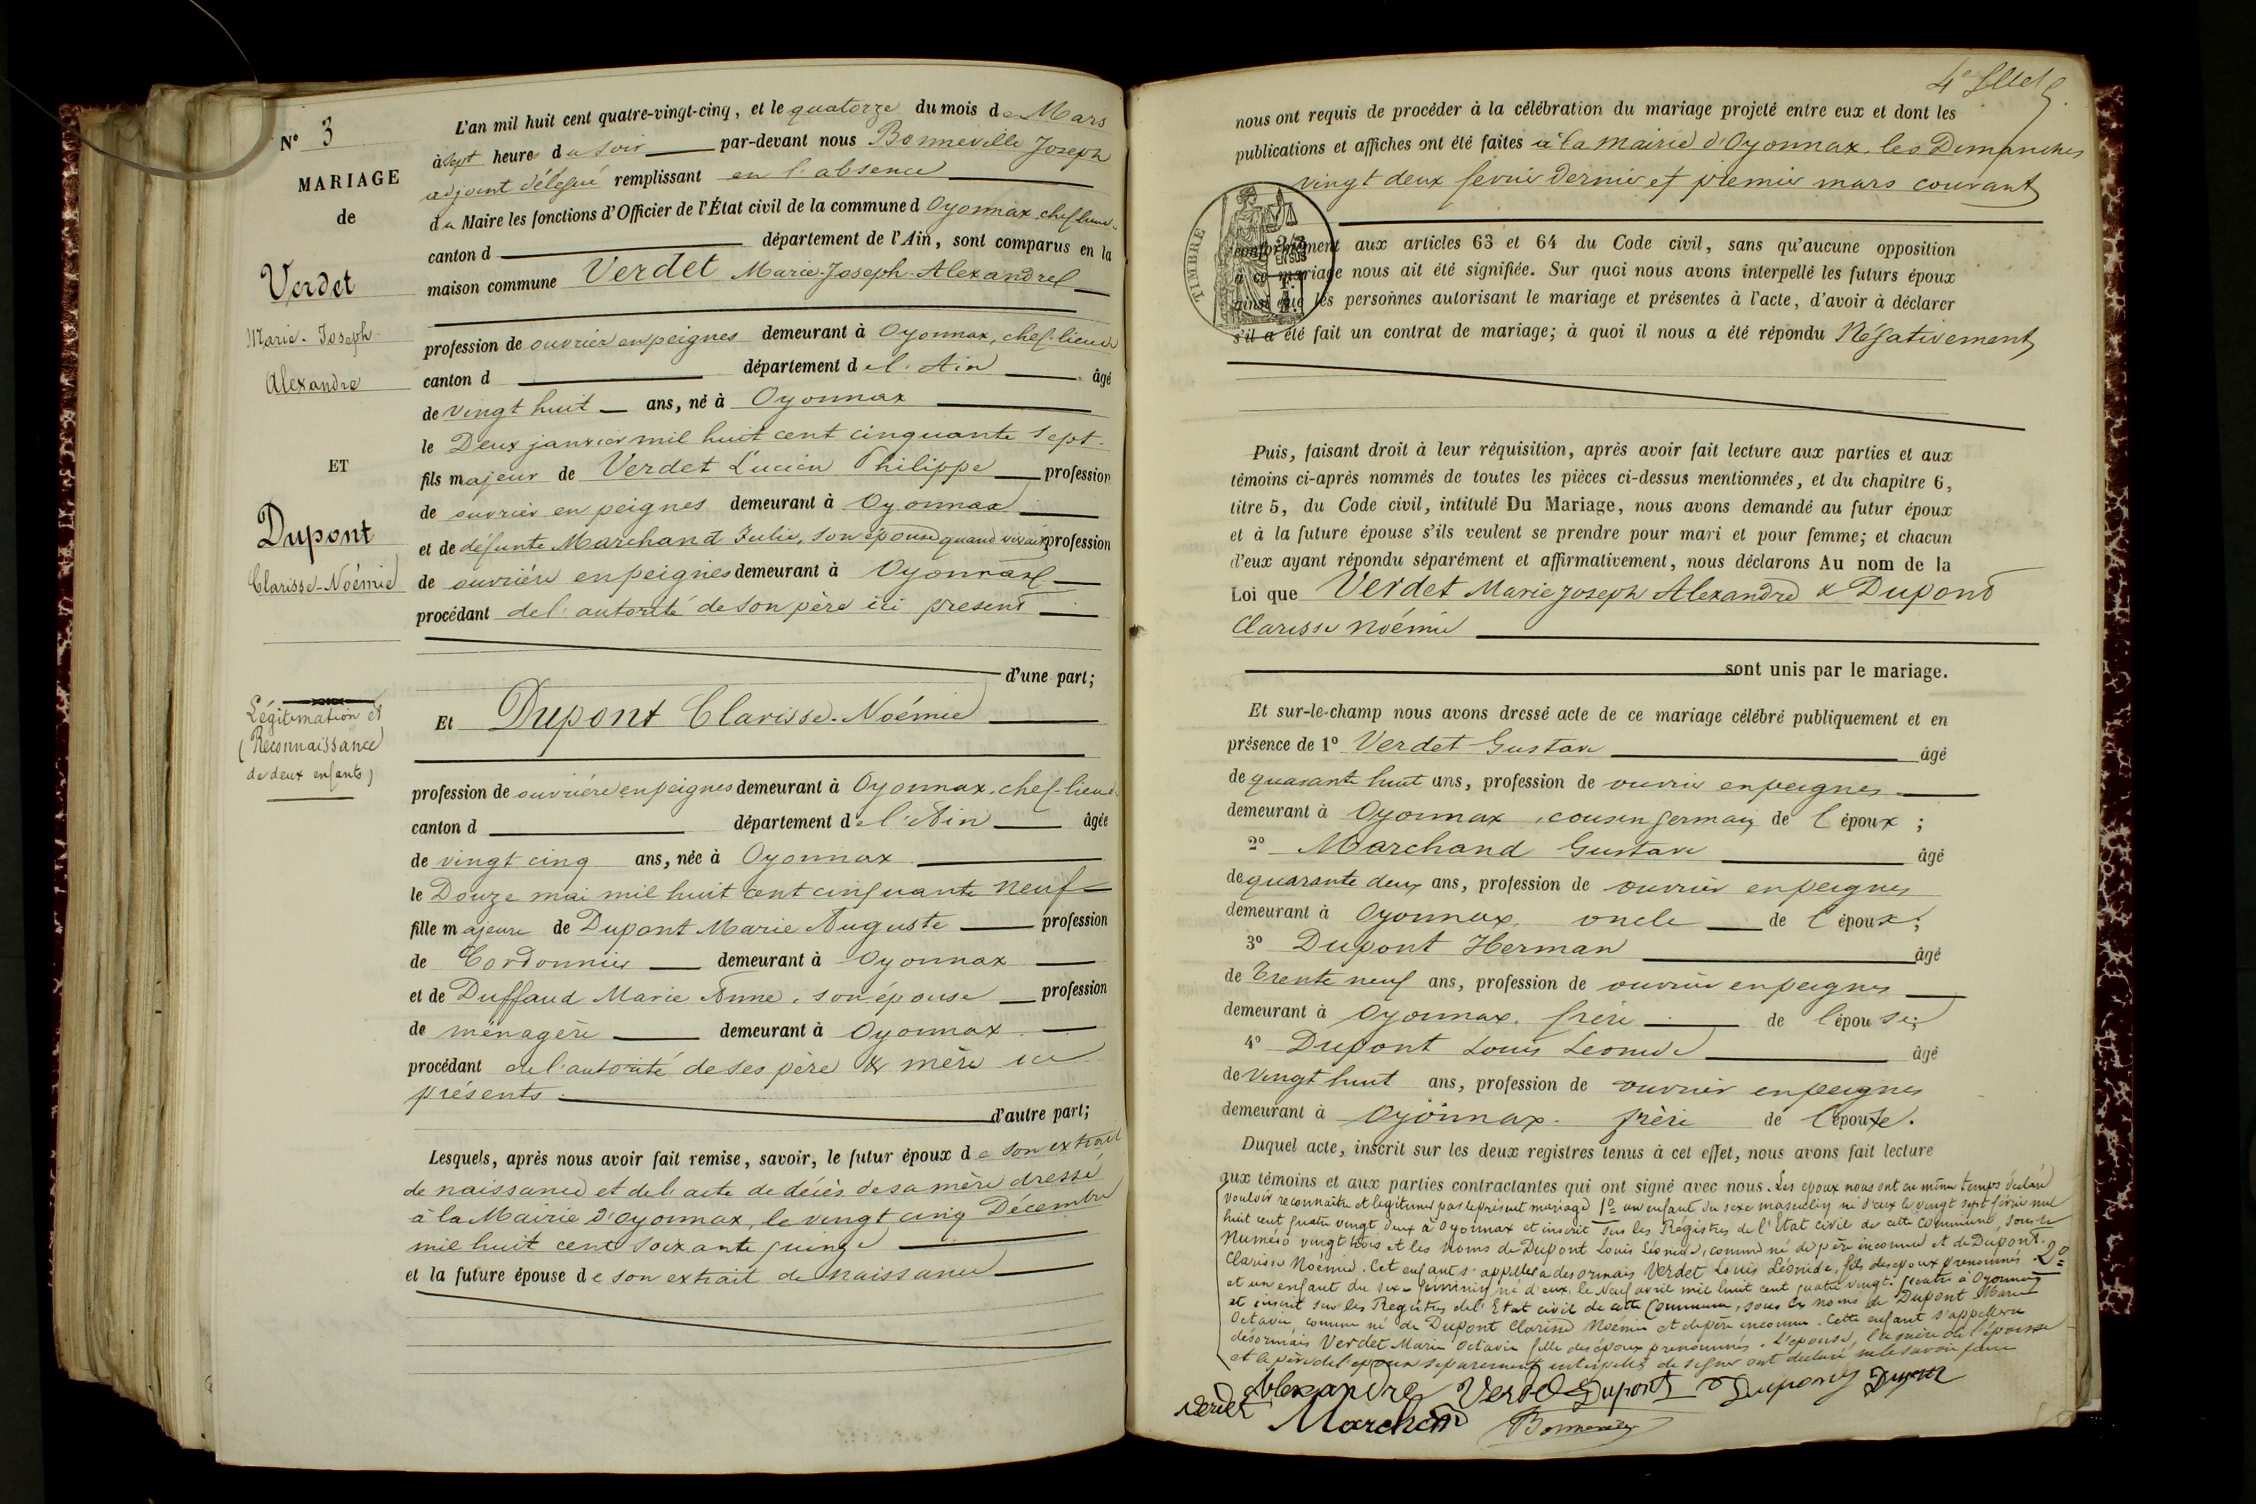 N° 3
MARIAGE
de
Verdet
Marie-Joseph
Alexandre
ET
Dupont
Clarisse-Noémie
Légitimation et
(Reconnaissance
de deux enfants)
L'an mil huit cent quatre-vingt-cinq, et le quatorze du mois de Mars
à sept heures du soir par-devant nous Bonneville Joseph
adjoint délégué remplissant en l'absence
du Maire les fonctions d'Officier de l'État civil de la commune d Oyonnax chef lieu
canton d département de l'Ain, sont comparus en la
maison commune Verdet Marie-Joseph-Alexandre
profession de ouvrier en peignes demeurant à Oyonnax, chef-lieu
canton d département de l'Ain âgé
de vingt huit ans, né à Oyonnax
le Deux janvier mil huit cent cinquante sept
fils majeur de Verdet Lucien Philippe profession
de ouvrier en peignes demeurant à Oyonnax
et de défunte Marchand Julie, son épouse quand vivait profession
de ouvrière en peignes demeurant à Oyonnax
procédant de l'autorité de son père ici présent
d'une part;
Et Dupont Clarisse-Noémie
profession de ouvrière en peignes demeurant à Oyonnax, chef-lieu
canton d département de l'Ain âgée
de vingt cinq ans, née à Oyonnax
le Douze mai mil huit cent cinquante neuf
fille majeure de Dupont Marie Auguste profession
de Cordonnier demeurant à Oyonnax
et de Duffaud Marie Anne, son épouse profession
de ménagère demeurant à Oyonnax
procédant de l'autorité de ses père & mère ici
présents
d'autre part;
Lesquels, après nous avoir fait remise, savoir, le futur époux de son extrait
de naissance et de l'acte de décès de sa mère dressé
à la Mairie d'Oyonnax, le vingt cinq Décembre
mil huit cent soixante quinze
et la future épouse de son extrait de naissance
nous ont requis de procéder à la célébration du mariage projeté entre eux et dont les
publications et affiches ont été faites à la mairie d'Oyonnax les Dimanches
vingt deux fevrier dernier et premier mars courant
TIMBRE
conformément aux articles 63 et 64 du Code civil, sans qu'aucune opposition
à ce mariage nous ait été signifiée. Sur quoi nous avons interpellé les futurs époux
ainsi que les personnes autorisant le mariage et présentes à l'acte, d'avoir à déclarer
s'il a été fait un contrat de mariage; à quoi il nous a été répondu Négativement
Puis, faisant droit à leur réquisition, après avoir fait lecture aux parties et aux
témoins ci-après nommés de toutes les pièces ci-dessus mentionnées, et du chapitre 6,
titre 5, du Code civil, intitulé Du Mariage, nous avons demandé au futur époux
et à la future épouse s'ils veulent se prendre pour mari et pour femme; et chacun
d'eux ayant répondu séparément et affirmativement, nous déclarons Au nom de la
Loi que Verdet Marie Joseph Alexandre & Dupont
Clarisse Noémie
sont unis par le mariage.
Et sur-le-champ nous avons dressé acte de ce mariage célébré publiquement et en
présence de 1° Verdet Gustave âgé
de quarante huit ans, profession de ouvrier en peignes
demeurant à Oyonnax, cousin germain de l'époux;
2° Marchand Gustave âgé
de quarante deux ans, profession de ouvrier en peignes
demeurant à Oyonnax, oncle de l'époux;
3° Dupont Herman âgé
de trente neuf ans, profession de ouvrier en peignes
demeurant à Oyonnax, frère de l'épouse;
4° Dupont Louis Leonide âgé
de vingt huit ans, profession de ouvrier en peignes
demeurant à Oyonnax. frère de l'épouse.
Duquel acte, inscrit sur les deux registres tenus à cet effet, nous avons fait lecture
aux témoins et aux parties contractantes qui ont signé avec nous. Les époux nous ont en même temps déclaré
vouloir reconnaitre et legitimer par le présent mariage 1° un enfant du sexe masculin né d'eux le vingt sept février mil
huit cent quatre vingt deux à Oyonnax et inscrit sur les Registres de l'Etat civil de cette commune, sous le
Numéro vingt trois et les noms de Dupont Louis Léonide, comme né de père inconnu et de Dupont
Clarisse Noémie. Cet enfant s'appellera desormais Verdet Louis Léonide, fils des époux prénommés. 2°
et un enfant du sexe féminin né d'eux, le Neuf avril mil huit cent quatre vingt-quatre à Oyonnax
et inscrit sur les Registres de l'Etat civil de cette Commune, sous les noms de Dupont Marie
Octavie, comme né de Dupont Clarisse Noémie et de père inconnu. Cette enfant s'appellera
désormais Verdet Marie Octavie fille des époux prénommés. L'épouse, la mère de l'épouse
et le père de l'époux separement interpellés de signer ont déclaré ne le savoir faire
Alexandre Verdet Dupont Dupont Dupont
Verdet Marchand Bonneville